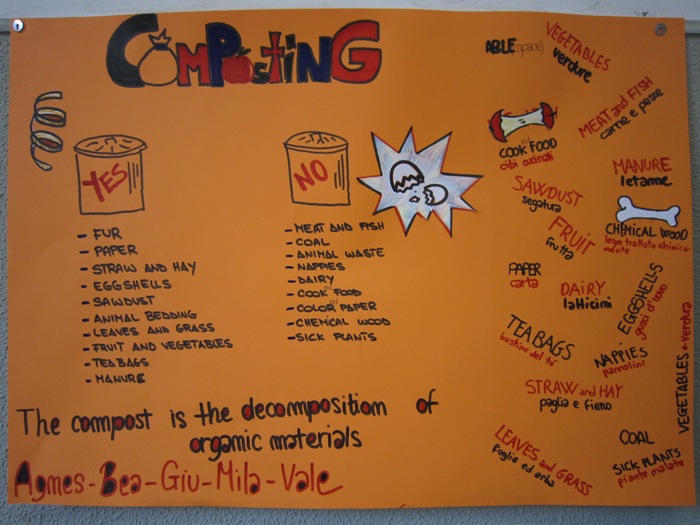 COMPOSTING
YES
- FUR
- PAPER
- STRAW AND HAY
- EGGSHELLS
- SAWDUST
- ANIMAL BEDDING
- LEAVES AND GRASS
- FRUIT AND VEGETABLES
- TEABAGS
- MANURE
NO
- MEAT AND FISH
- COAL
- ANIMAL WASTE
- NAPPIES
- DAIRY
- COOK FOOD
- COLOR PAPER
- CHEMICAL WOOD
- SICK PLANTS
The compost is the decomposition of
organic materials
Agnes-Bea-Giu-Mila-Vale
ABLE (space)
VEGETABLES
verdure
MEAT and FISH
carne e pesce
COOK FOOD
cibi cucinati
MANURE
letame
SAWDUST
segatura
CHEMICAL WOOD
legno trattato chimica
mente
FRUIT
frutta
PAPER
carta
DAIRY
latticini
EGGSHELLS
gusci d'uovo
TEABAGS
bustine del te'
NAPPIES
pannolini
VEGETABLES = verdura
STRAW and HAY
paglia e fieno
LEAVES and GRASS
foglie ed erba
COAL
SICK PLANTS
piante malate